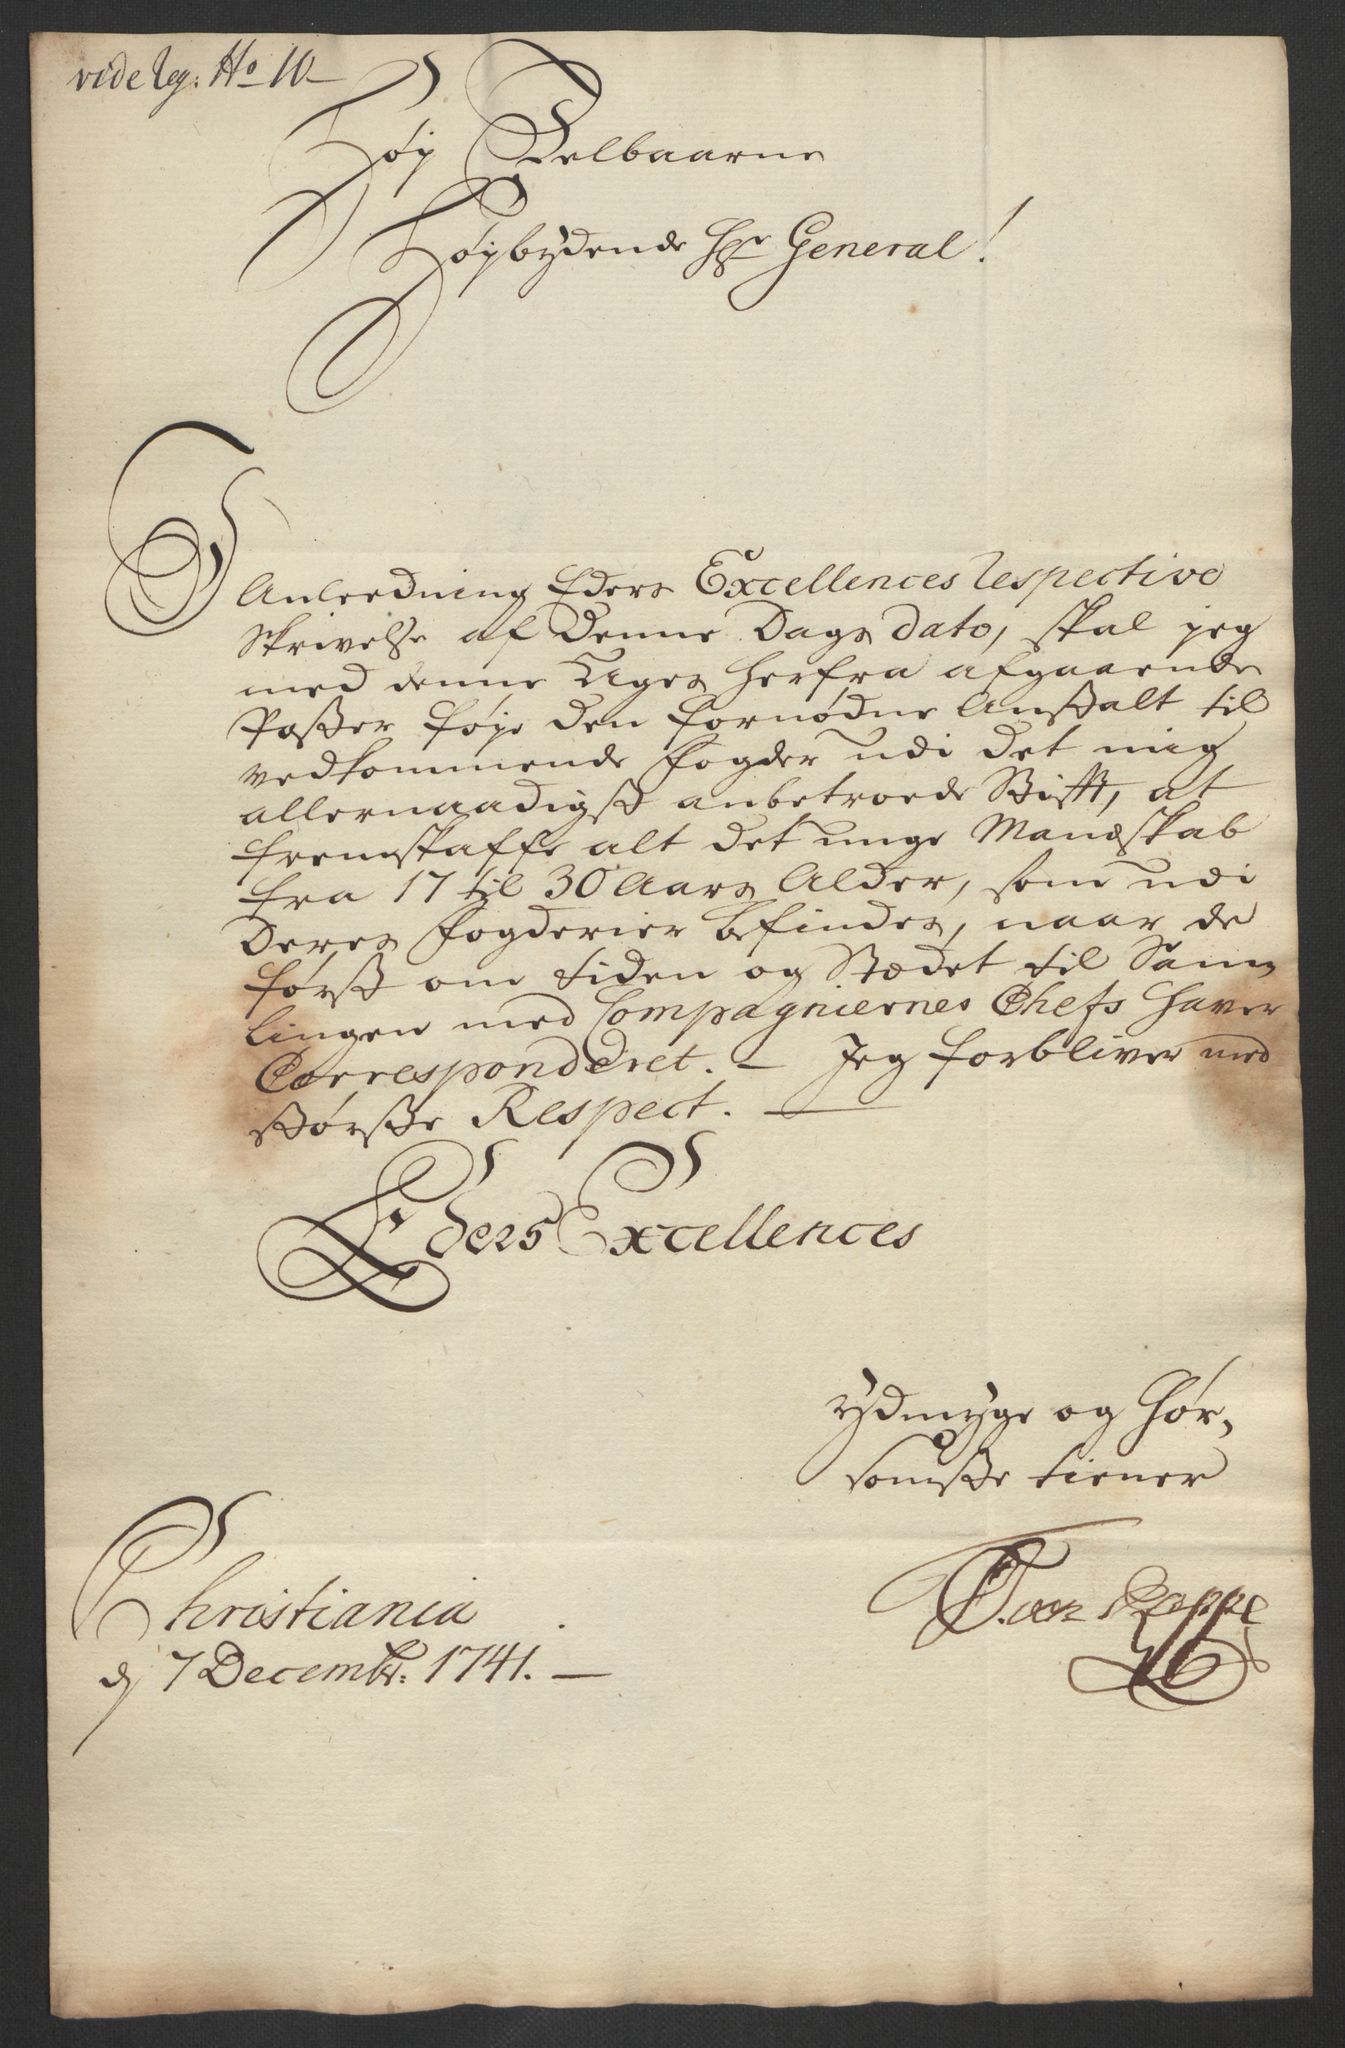 vide reg: No 10
Høy Edelbaarne
Høybydende Hr General!
I
Anleedning Eders Excellences respective
Skrivelse af Denne Dags dato, skal jeg
med denne Uges herfra afgaaende
Poster føye den fornødne Anstalt til
vedkommende Fogder udi det mig
allernaadigst anbetroede Stift, at
fremskaffe alt det unge Mandskab
fra 17 til 30 Aars Alder, som udi
Deres Fogderier befindes, naar de
først om tiden og Stædet til Sam-
lingen med Compagniernes Chefs haver
Corresponderet. — Jeg forbliver med
største Respect. —
Eders Excellences
ydmyge og hør-
somste tiener
Christiania
d 7 Decembr: 1741. —
F. von Rappe